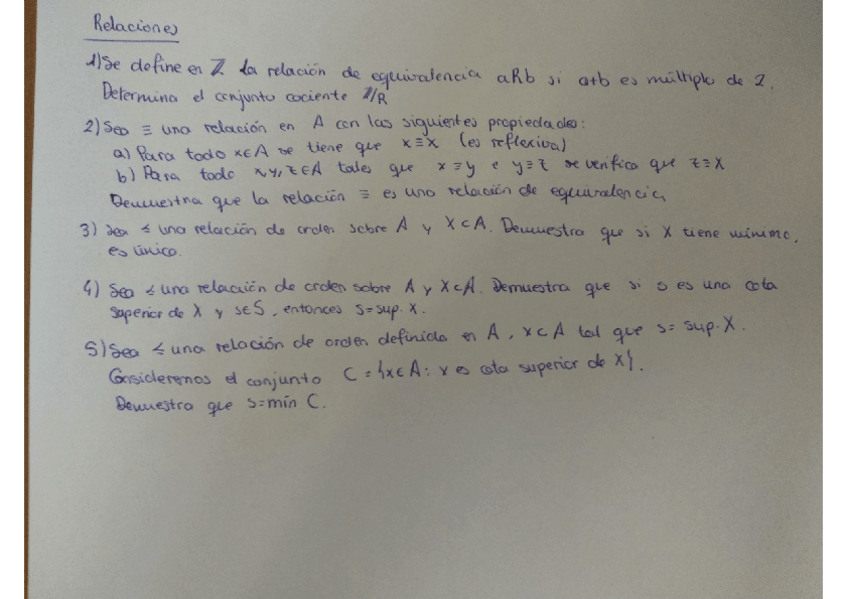 Relaciones
1) Se define en ℤ la relación de equivalencia aRb si a+b es múltiplo de 2.
Determina el conjunto cociente ℤ/R
2) Sea ≡ una relación en A con las siguientes propiedades:
a) Para todo x∈A se tiene que x≡x (es reflexiva)
b) Para todo x,y,z∈A tales que x≡y e y≡z se verifica que z≡x
Demuestra que la relación ≡ es una relación de equivalencia
3) Sea ≤ una relación de orden sobre A y X⊂A. Demuestra que si X tiene mínimo,
es único.
4) Sea ≤ una relación de orden sobre A y X⊂A. Demuestra que si s es una cota
superior de X y s∈S, entonces s=sup. X.
5) Sea ≤ una relación de orden definida en A, X⊂A tal que s= sup. X.
Consideremos el conjunto C = {x∈A: x es cota superior de X}.
Demuestra que s=mín C.